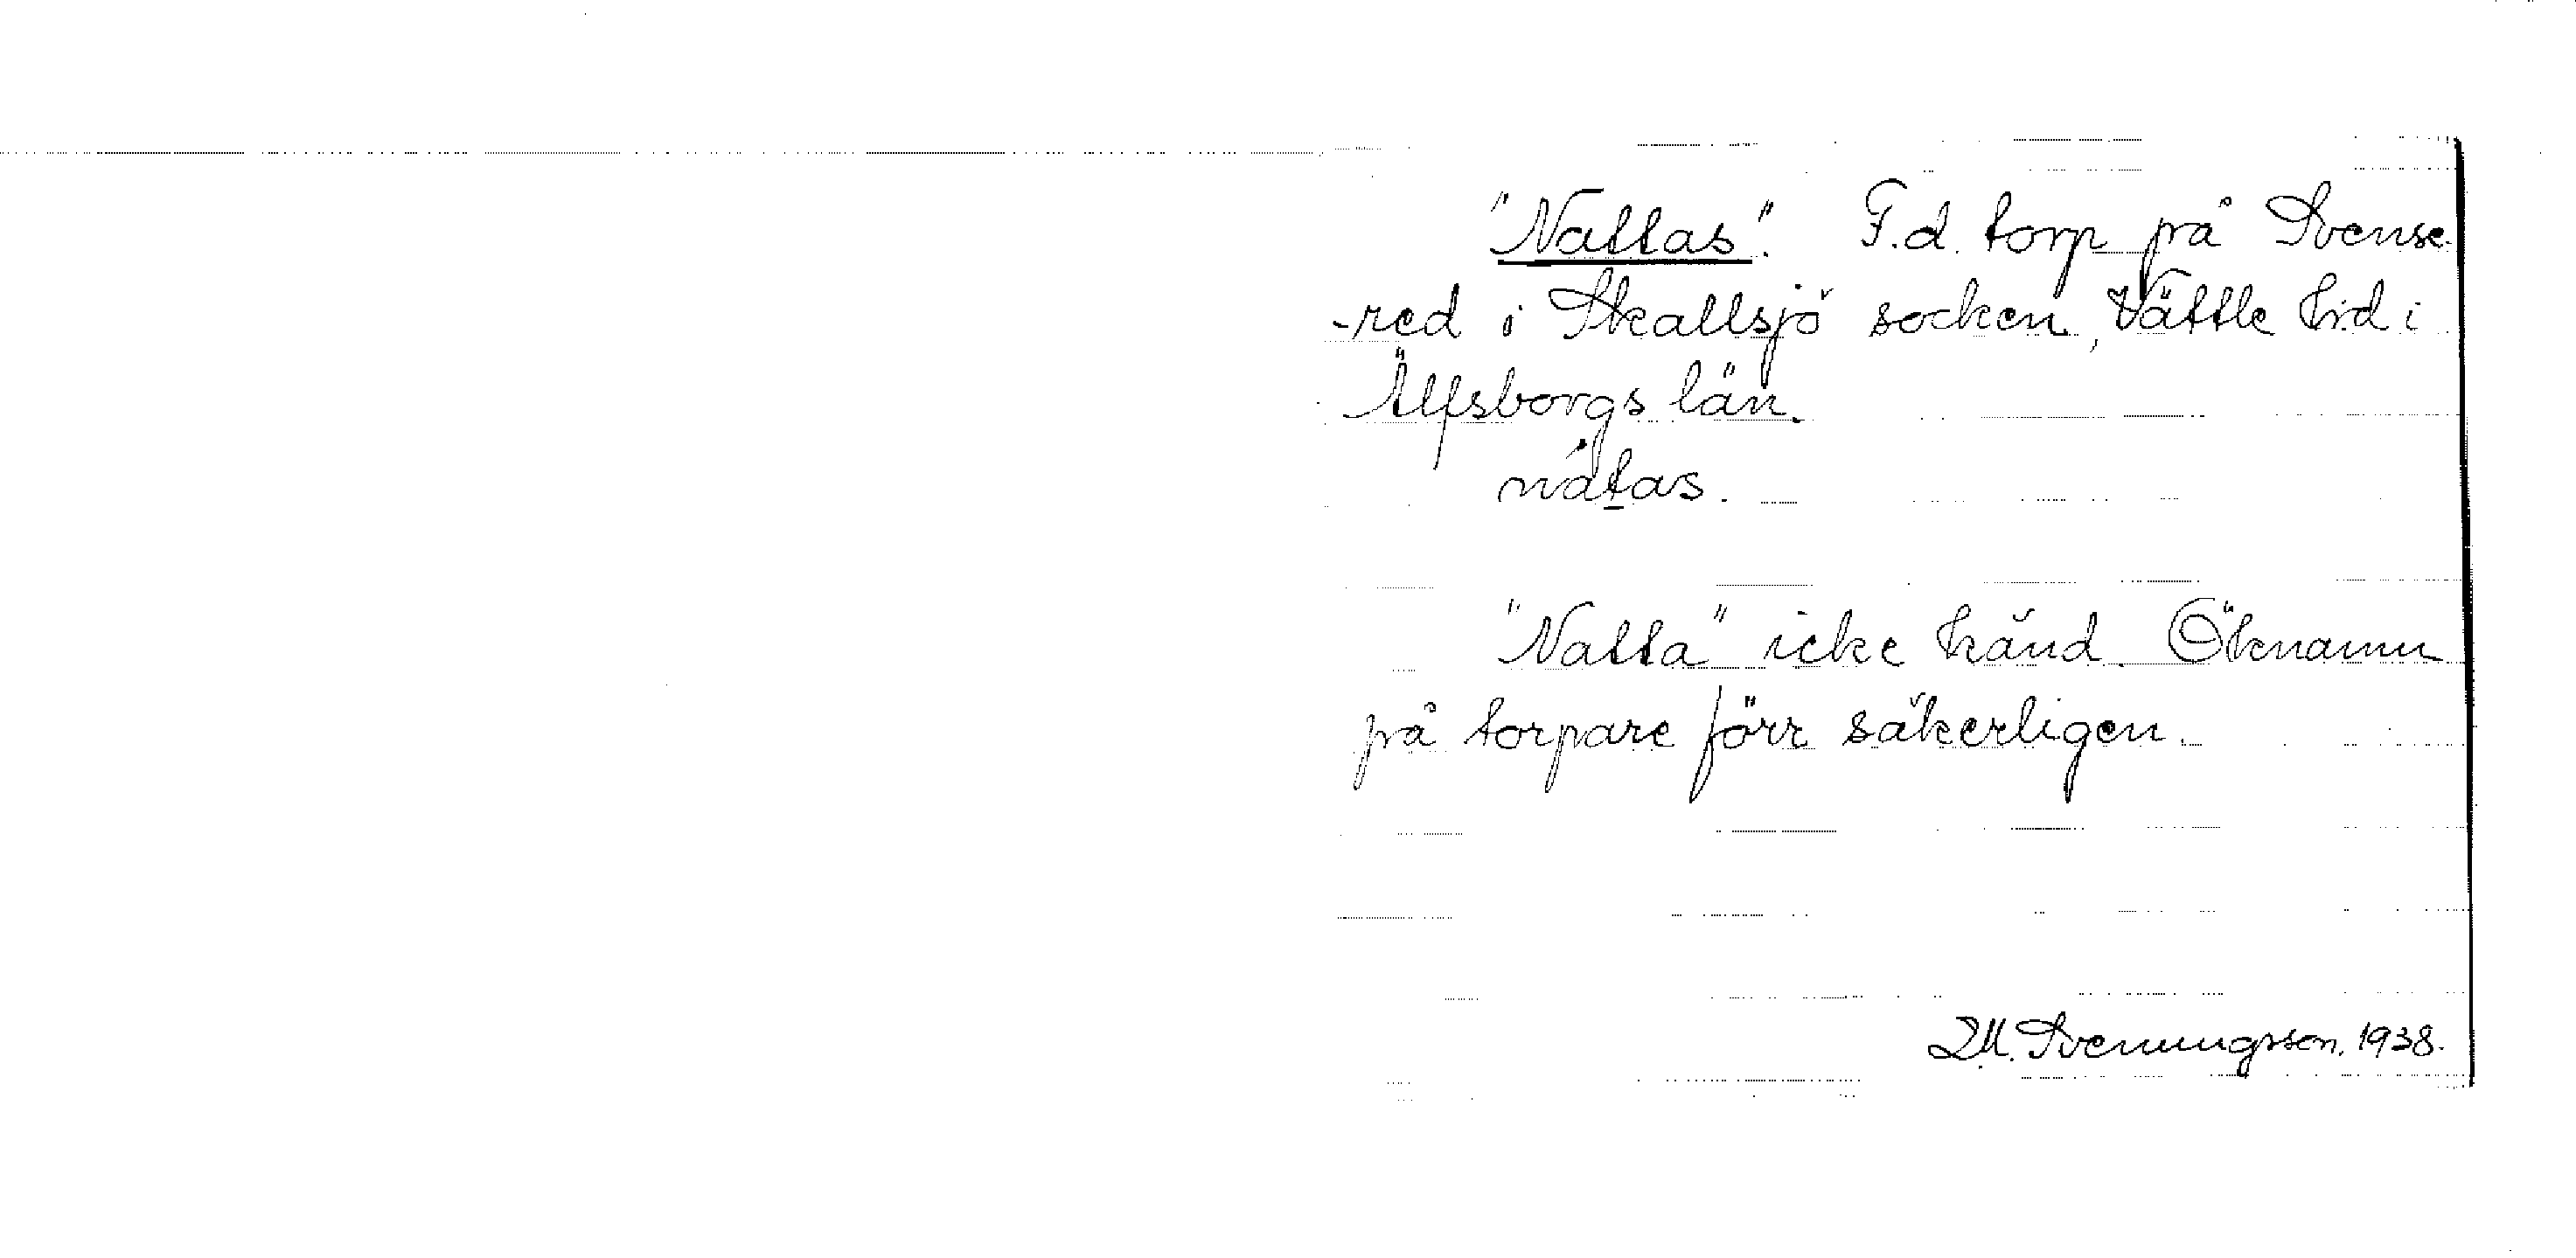 "Nattas". F.d. torp på Svense-
-red i Skallsjö socken, Vättle hrd i
Älfsborgs län.
nát̲as.
"Natta" icke känd. Öknamn
på torpare förr säkerligen.
D.M. Svenungsson. 1938.